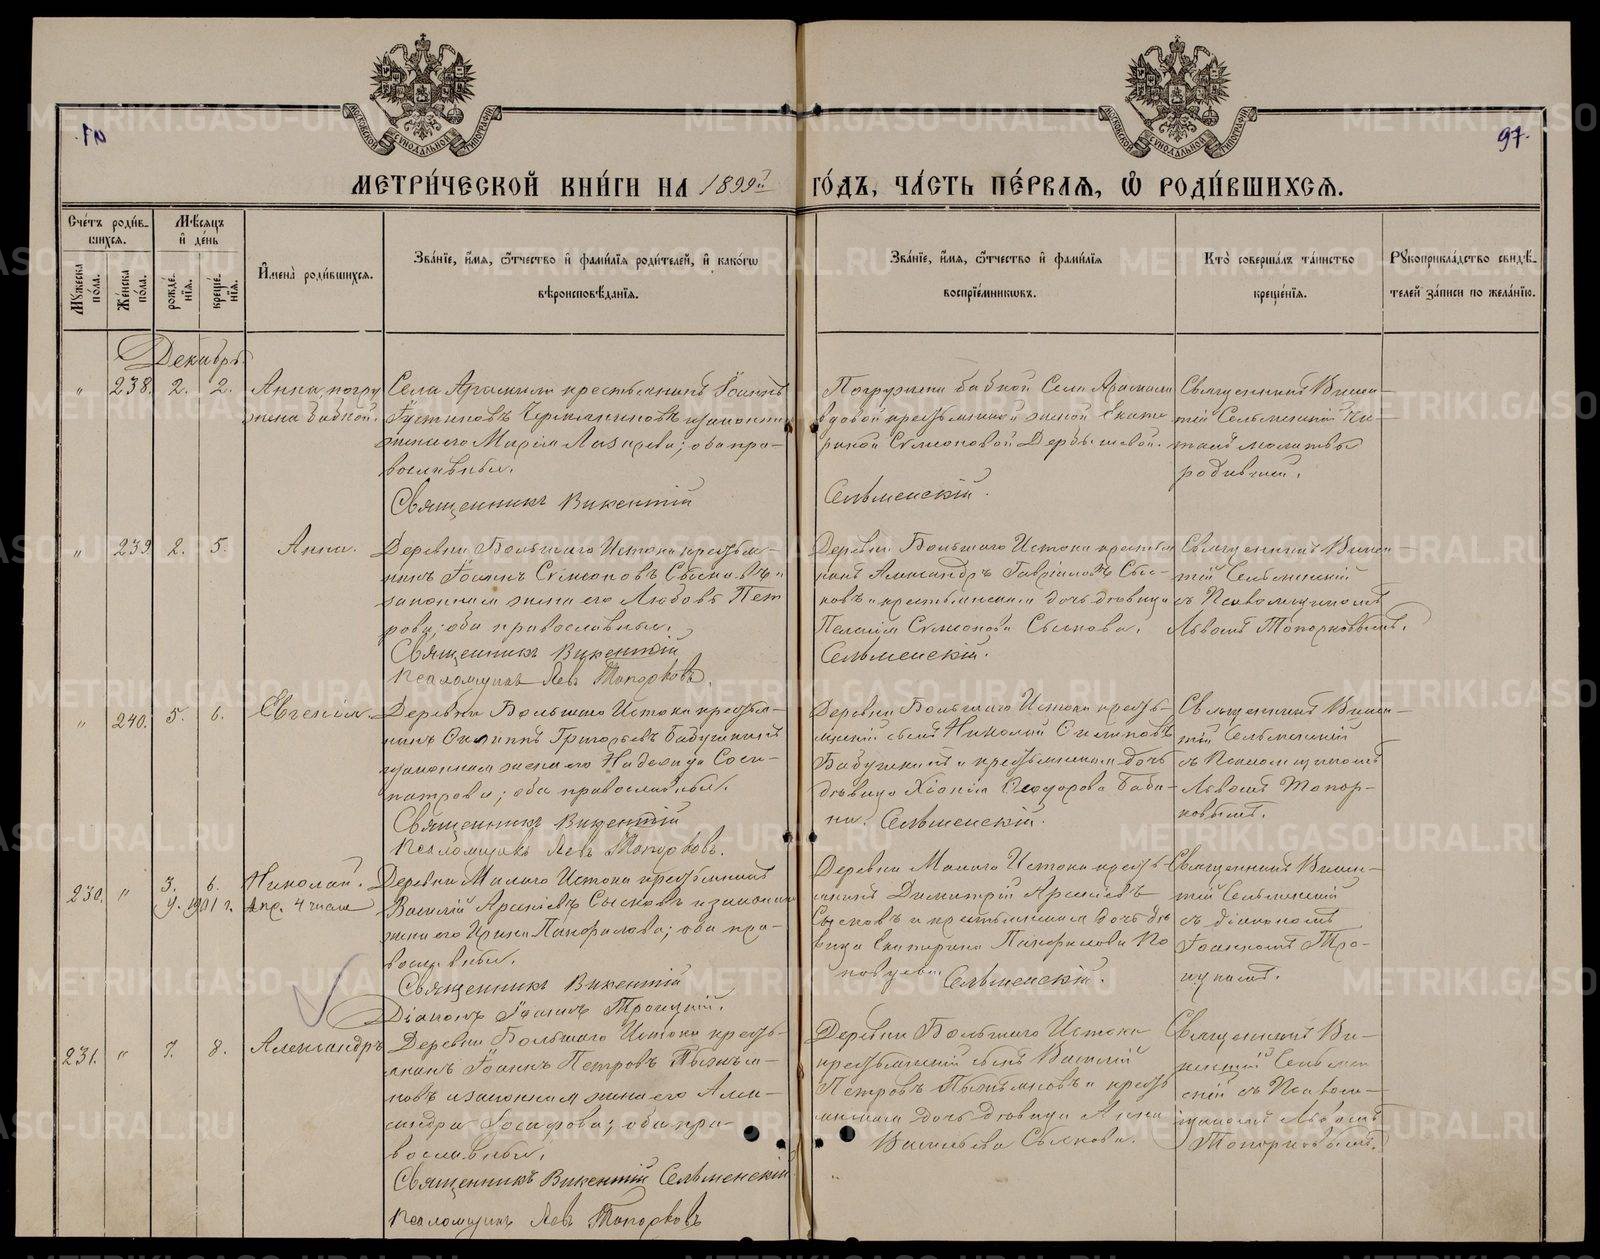 97.
МЕТРИ́ЧЕСКОЙ КНИ́ГИ НА 1899й ГО́ДЪ, ЧА́СТЬ ПЕ́РВАѦ, Ѽ РОДИ́ВШИХСѦ.
Сче́тъ роди́в-
шихся.
Мѣ́сяцъ
и҆ де́нь
И҆мена̀ роди́вшихся.
Зва́нїе, и҆́мя, ѻ҆́тчество и҆ фами́лїя роди́телей, и҆ како́гѡ
вѣроисповѣ́данїя.
Зва́нїе, и҆́мя, ѻ҆́тчество и҆ фами́лїя
воспрїе́мникѡвъ.
Кто̀ соверша́лъ та́инство
креще́нїя.
Рꙋкоприкла́дство свидѣ́-
телей за́писи по жела́нїю.
Мꙋ́жеска
по́ла.
Же́нска
по́ла.
рожде́-
нїя.
креще́-
нїя.
Декабрь.
" 238. 2. 2.
Анна, погру
жена бабкой.
Села Арамили крестьянинъ Іоаннъ
Іустиновъ и законная
жена его Марія Лазарева; оба пра-
вославные.
Священникъ Викентій
Погружена бабкой Села Арамили
вдовой крестьянской женой Екате
риной Сѵмеоновой Дерябишевой.
Сельменскій.
Священникъ Викен-
тій Сельменскій чи-
талъ молитвы
родившей.
" 239. 2. 5.
Анна.
Деревни Большаго Истока крестья-
нинъ Іоаннъ Сѵмеоновъ Сысковъ и
законная жена его Любовь Пет
рова; оба православные.
Священникъ Викентій
Псаломщикъ Левъ Топорковъ.
Деревни Большаго Истока крестья
нинъ Александръ Гавріиловъ Сыс-
ковъ и крестьянская дочь дѣвица
Пелагія Сѵмеонова Сыскова.
Сельменскій.
Священникъ Викен-
тій Сельменскій
съ Псаломщикомъ
Львомъ Топорковымъ.
" 240. 5. 6.
Евгенія.
Деревни Большаго Истока крестья-
нинъ Филиппъ Григорьевъ Бабушкинъ
и законная жена его Надежда Соси-
патрова; оба православные.
Священникъ Викентій
Псаломщикъ Левъ Топорковъ.
Деревни Большаго Истока кресть-
янскій сынъ Николай Филиповъ
Бабушкинъ и крестьянская дочь
дѣвица Хіонія Ѳеодорова Баби-
на. Сельменскій.
Священникъ Викен-
тій Сельменскій
съ Псаломщикомъ
Львомъ Топор-
ковымъ.
230. " 3. 6.
Николай.
у. 1901 г. Апр. 4 числа
Деревни Малаго Истока крестьянинъ
Василій Арсеніевъ Сысковъ и законная
жена его Ирина Панфилова; оба пра-
вославные.
Священникъ Викентій
Діаконъ Іоаннъ Троицкій.
Деревни Малаго Истока кресть-
янинъ Димитрій Арсеніевъ
Сысковъ и крестьянская дочь дѣ
вица Екатерина Панфилова По
Сельменскій.
Священникъ Викен-
тій Сельменскій
съ діакономъ
Іоанномъ Тро-
ицкимъ.
231. " 7. 8.
Александръ
Деревни Большаго Истока кресть-
янинъ Іоаннъ Петровъ Пьянья-
ковъ и законная жена его Алек-
сандра Іосифова; оба пра-
вославные.
Священникъ Викентій Сельменскій
Псаломщикъ Левъ Топорковъ
Деревни Большаго Истока
крестьянскій сынъ Василій
Петровъ и кресть
янская дочь дѣвица Анна
Васильева Сыскова.
Священникъ Ви-
кентій Сельмен
скій съ Псалом-
щикомъ Львомъ
Топорковымъ.
METRIKI.GASO-URAL.RU